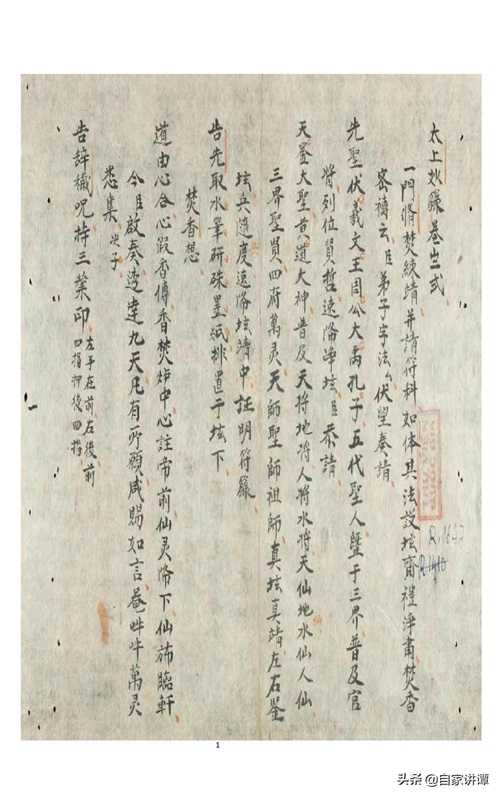 太上妙籙卷之弍
一門將焚練請并請符科如体具法設坛齋禮淨肅焚香
密禱云臣弟子字法厶伏望奏請
先聖伏羲文王周公大禹孔子五代聖人曁于三界普及官
將列位賢哲速降净坛臣恭請
天罡大聖黄道大神普及天将地将人将水将天仙地水仙人仙
三界聖賢四府萬灵天師聖師祖師真坛真靖左右鉴
坛兵随度速降坛請中証明符籙
告先取水筆研硃墨紙排置于坛下
焚香想
道由心合心假香傳香焚炉中心註帝前仙灵俻下仙旆臨軒
今臣啟奏逺達九天凢有所願咸賜如言唵吽吽萬灵
悉集 次子
告辞穢呪持三業印 左手在前右後前
四指押後四指
THƯ VIỆN
R.1647
R.1410
1
头条@自家讲谭